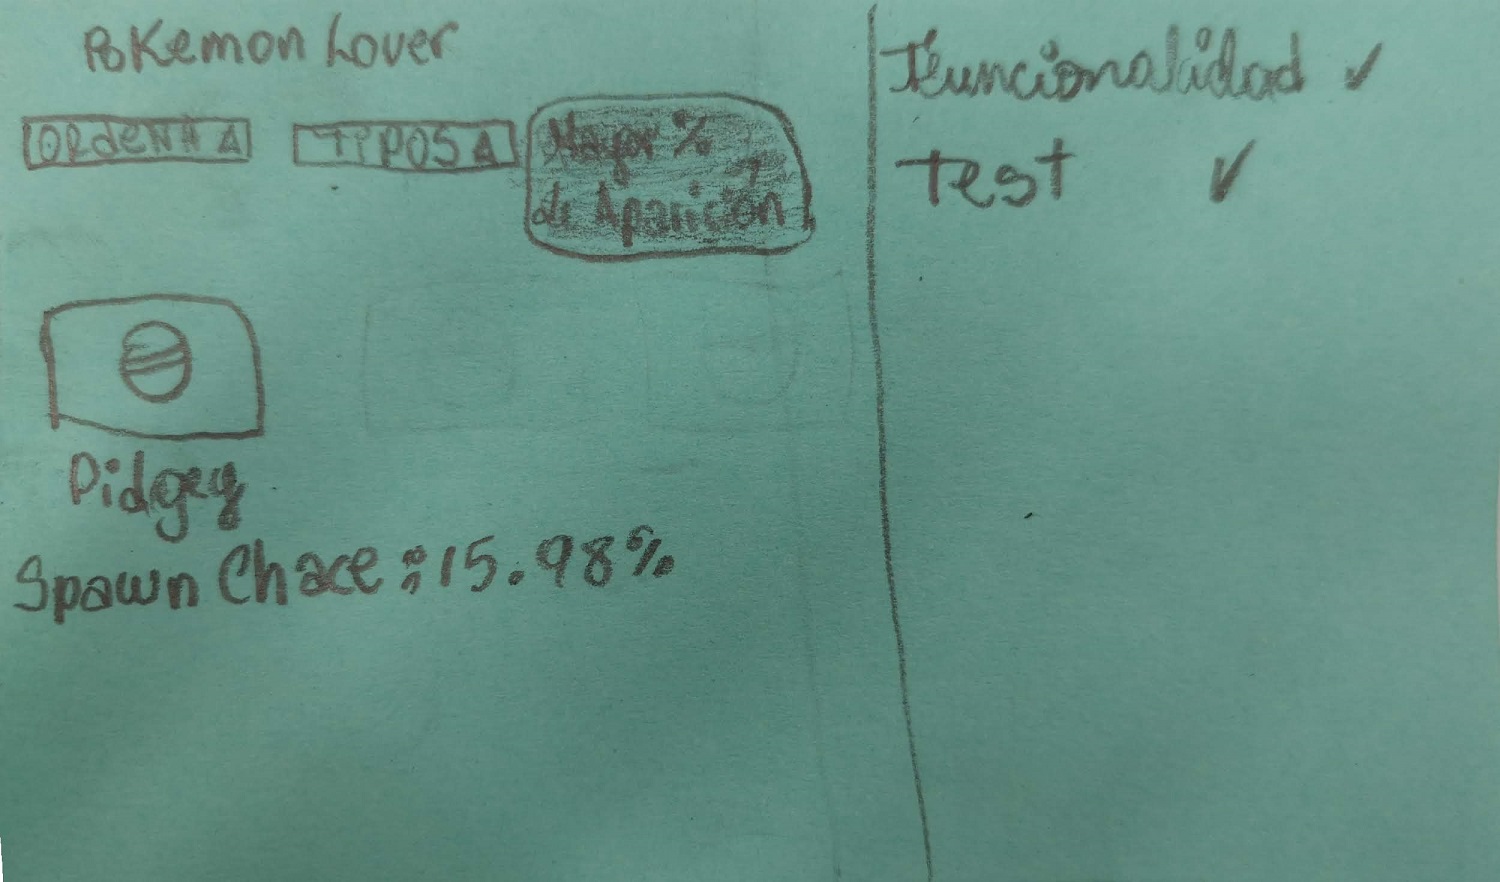 Pokemon Lover
ORdeNA
TIPOS
Mayor %
de Aparición
Pidgey
Spawn Chace: 15.98%
Funcionalidad ✓
Test ✓